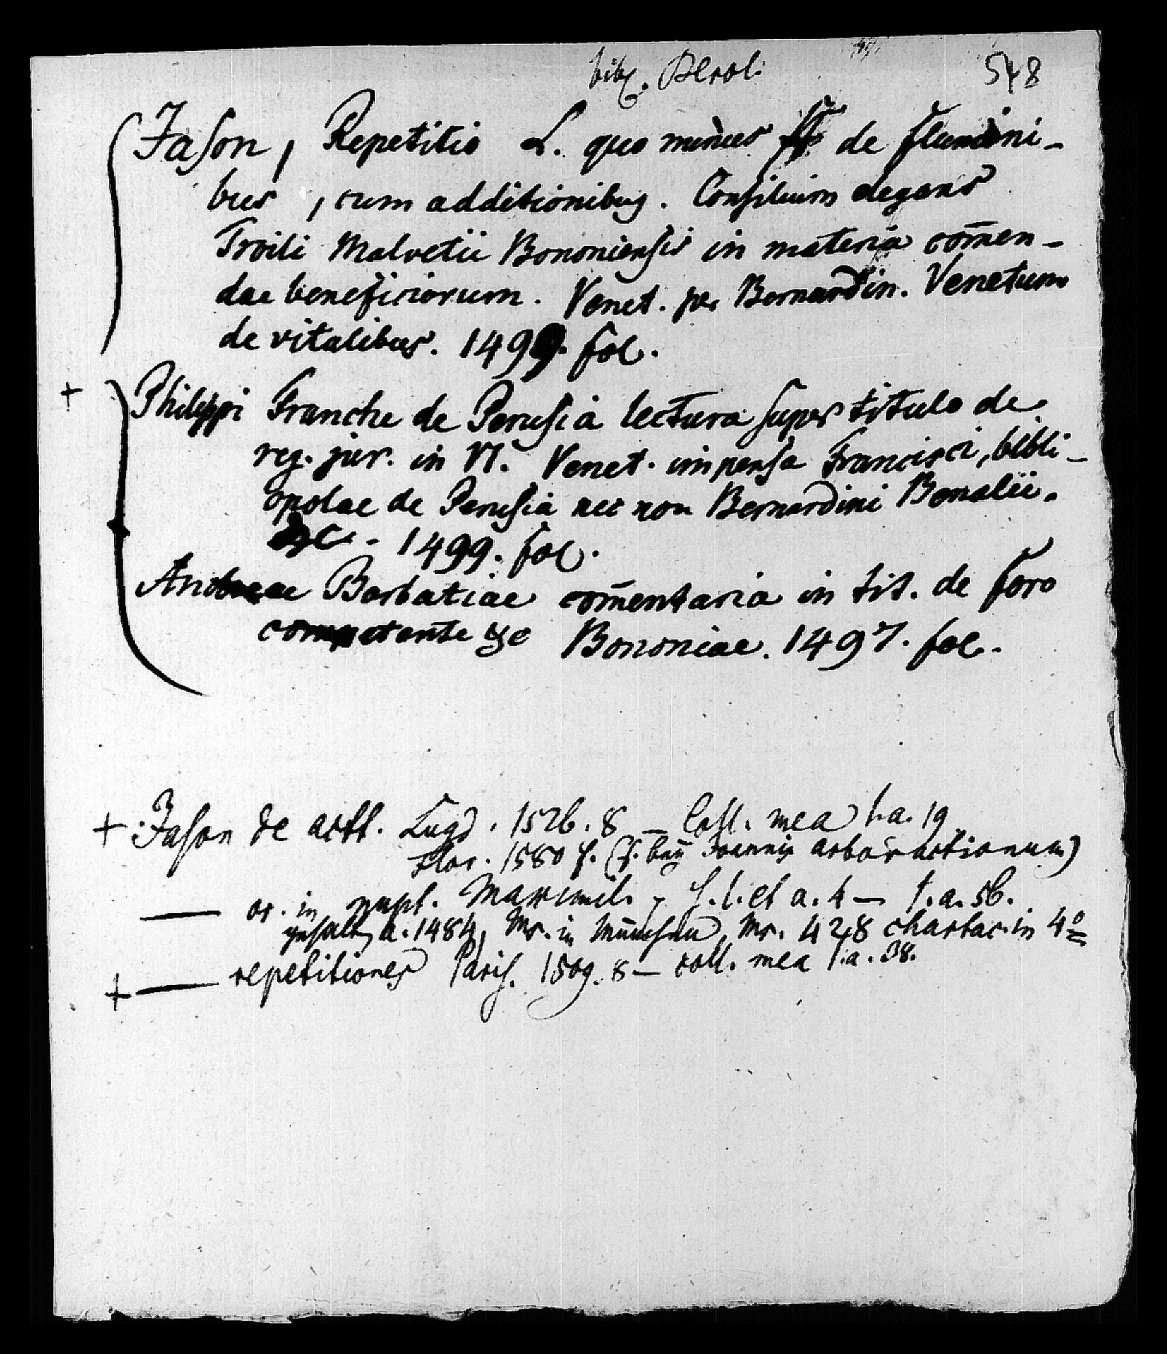 bibl. Berol. 548
Jason, Repetitio L. quo minus ff de flumini-
bus, cum additionibus. Consilium elegans
Troili Malvetii Bononiensis in materia com̄en-
dae beneficiorum. Venet. per Bernardin. Venetum
de vitalibus. 1499. fol.
+ Philippi Franche de Perusia lectura super titulo de
reg. jur. in VI. Venet. impensa Francisci, bibli-
opolae de Perusia nec non Bernardini Benalii.
&c. 1499. fol.
Andreae Barbatiae com̄entaria in tit. de foro
competente &c Bononiae. 1497. fol.
+ Jason de actt. Lugd. 1526. 8 — Coll. mea I.a. 19
Flor. 1580 f. (s. bey Joannis arbor actionum)
— or. in nupt. Maximil. s. l. et a. 4 — I.a. 56.
a. 1484, Ms. in München, Ms. 428 chartac. in 4º
+ — repetitiones Paris. 1509. 8 — coll. mea I.a. 38.